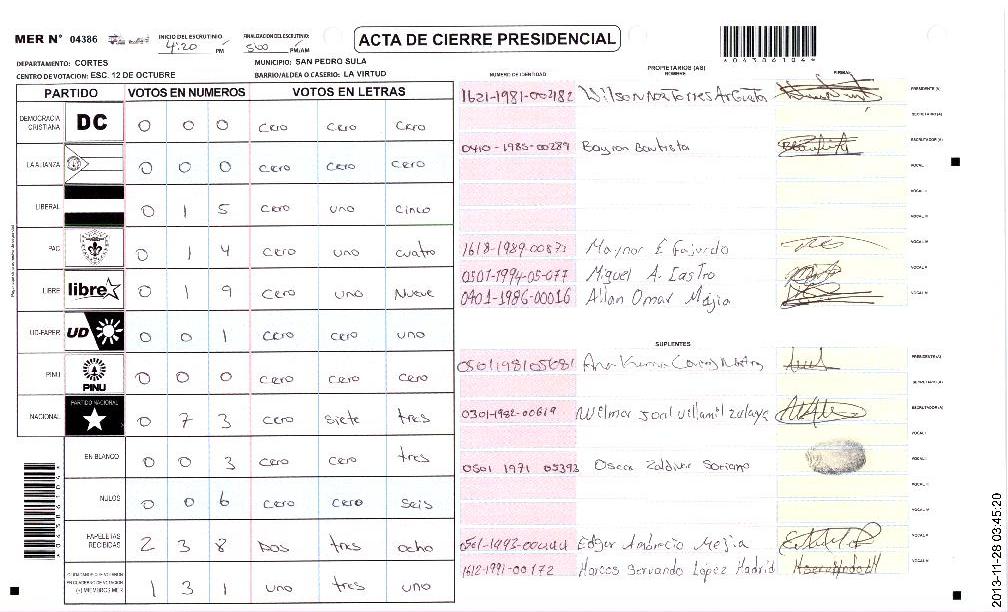 MER N° 04386 INICIO DEL ESCRUTINIO 4:20 PM FINALIZACION DEL ESCRUTINIO: 5:00 PM/AM
ACTA DE CIERRE PRESIDENCIAL
*04386104*
DEPARTAMENTO: CORTES MUNICIPIO: SAN PEDRO SULA
CENTRO DE VOTACION: ESC. 12 DE OCTUBRE BARRIO/ALDEA O CASERIO: LA VIRTUD
PARTIDO VOTOS EN NUMEROS VOTOS EN LETRAS
DEMOCRACIA CRISTIANA DC 0 0 0 cero cero cero
LA ALIANZA 0 0 0 cero cero cero
LIBERAL 0 1 5 cero uno cinco
PAC 0 1 4 cero uno cuatro
LIBRE libre 0 1 9 cero uno Nueve
UD-FAPER UD 0 0 1 cero cero uno
PINU PINU 0 0 0 cero cero cero
NACIONAL PARTIDO NACIONAL 0 7 3 cero siete tres
EN BLANCO 0 0 3 cero cero tres
NULOS 0 0 6 cero cero seis
PAPELETAS RECIBIDAS 2 3 8 Dos tres ocho
CIUDADANOS QUE VOTARON EN CUADERNO DE VOTACION (+) MIEMBROS MER 1 3 1 uno tres uno
NUMERO DE IDENTIDAD PROPIETARIOS (AS) NOMBRE FIRMAS
1621-1981-00282 Wilson Torres PRESIDENTE (A)
SECRETARIO (A)
0410-1985-00289 Bayron Bautista ESCRUTADOR (A)
VOCAL I
VOCAL II
VOCAL III
1618-1989-00871 Maynor E Fajardo VOCAL IV
0501-1994-05-077 Miguel A. Castro VOCAL V
0401-1986-00016 Allan Omar Mejia VOCAL VI
SUPLENTES
0501198105681 PRESIDENTE (A)
SECRETARIO (A)
0301-1982-00619 Wilmer Joel Villamil Zelaya ESCRUTADOR (A)
VOCAL I
0501 1971 05393 Oscar Zaldivar Soriano VOCAL II
VOCAL III
VOCAL IV
Edgar Ambrocio Mejia VOCAL V
1612-1991-00172 Marcos Servando López Madrid VOCAL VI
*04386104*
2013-11-28 03:45:20